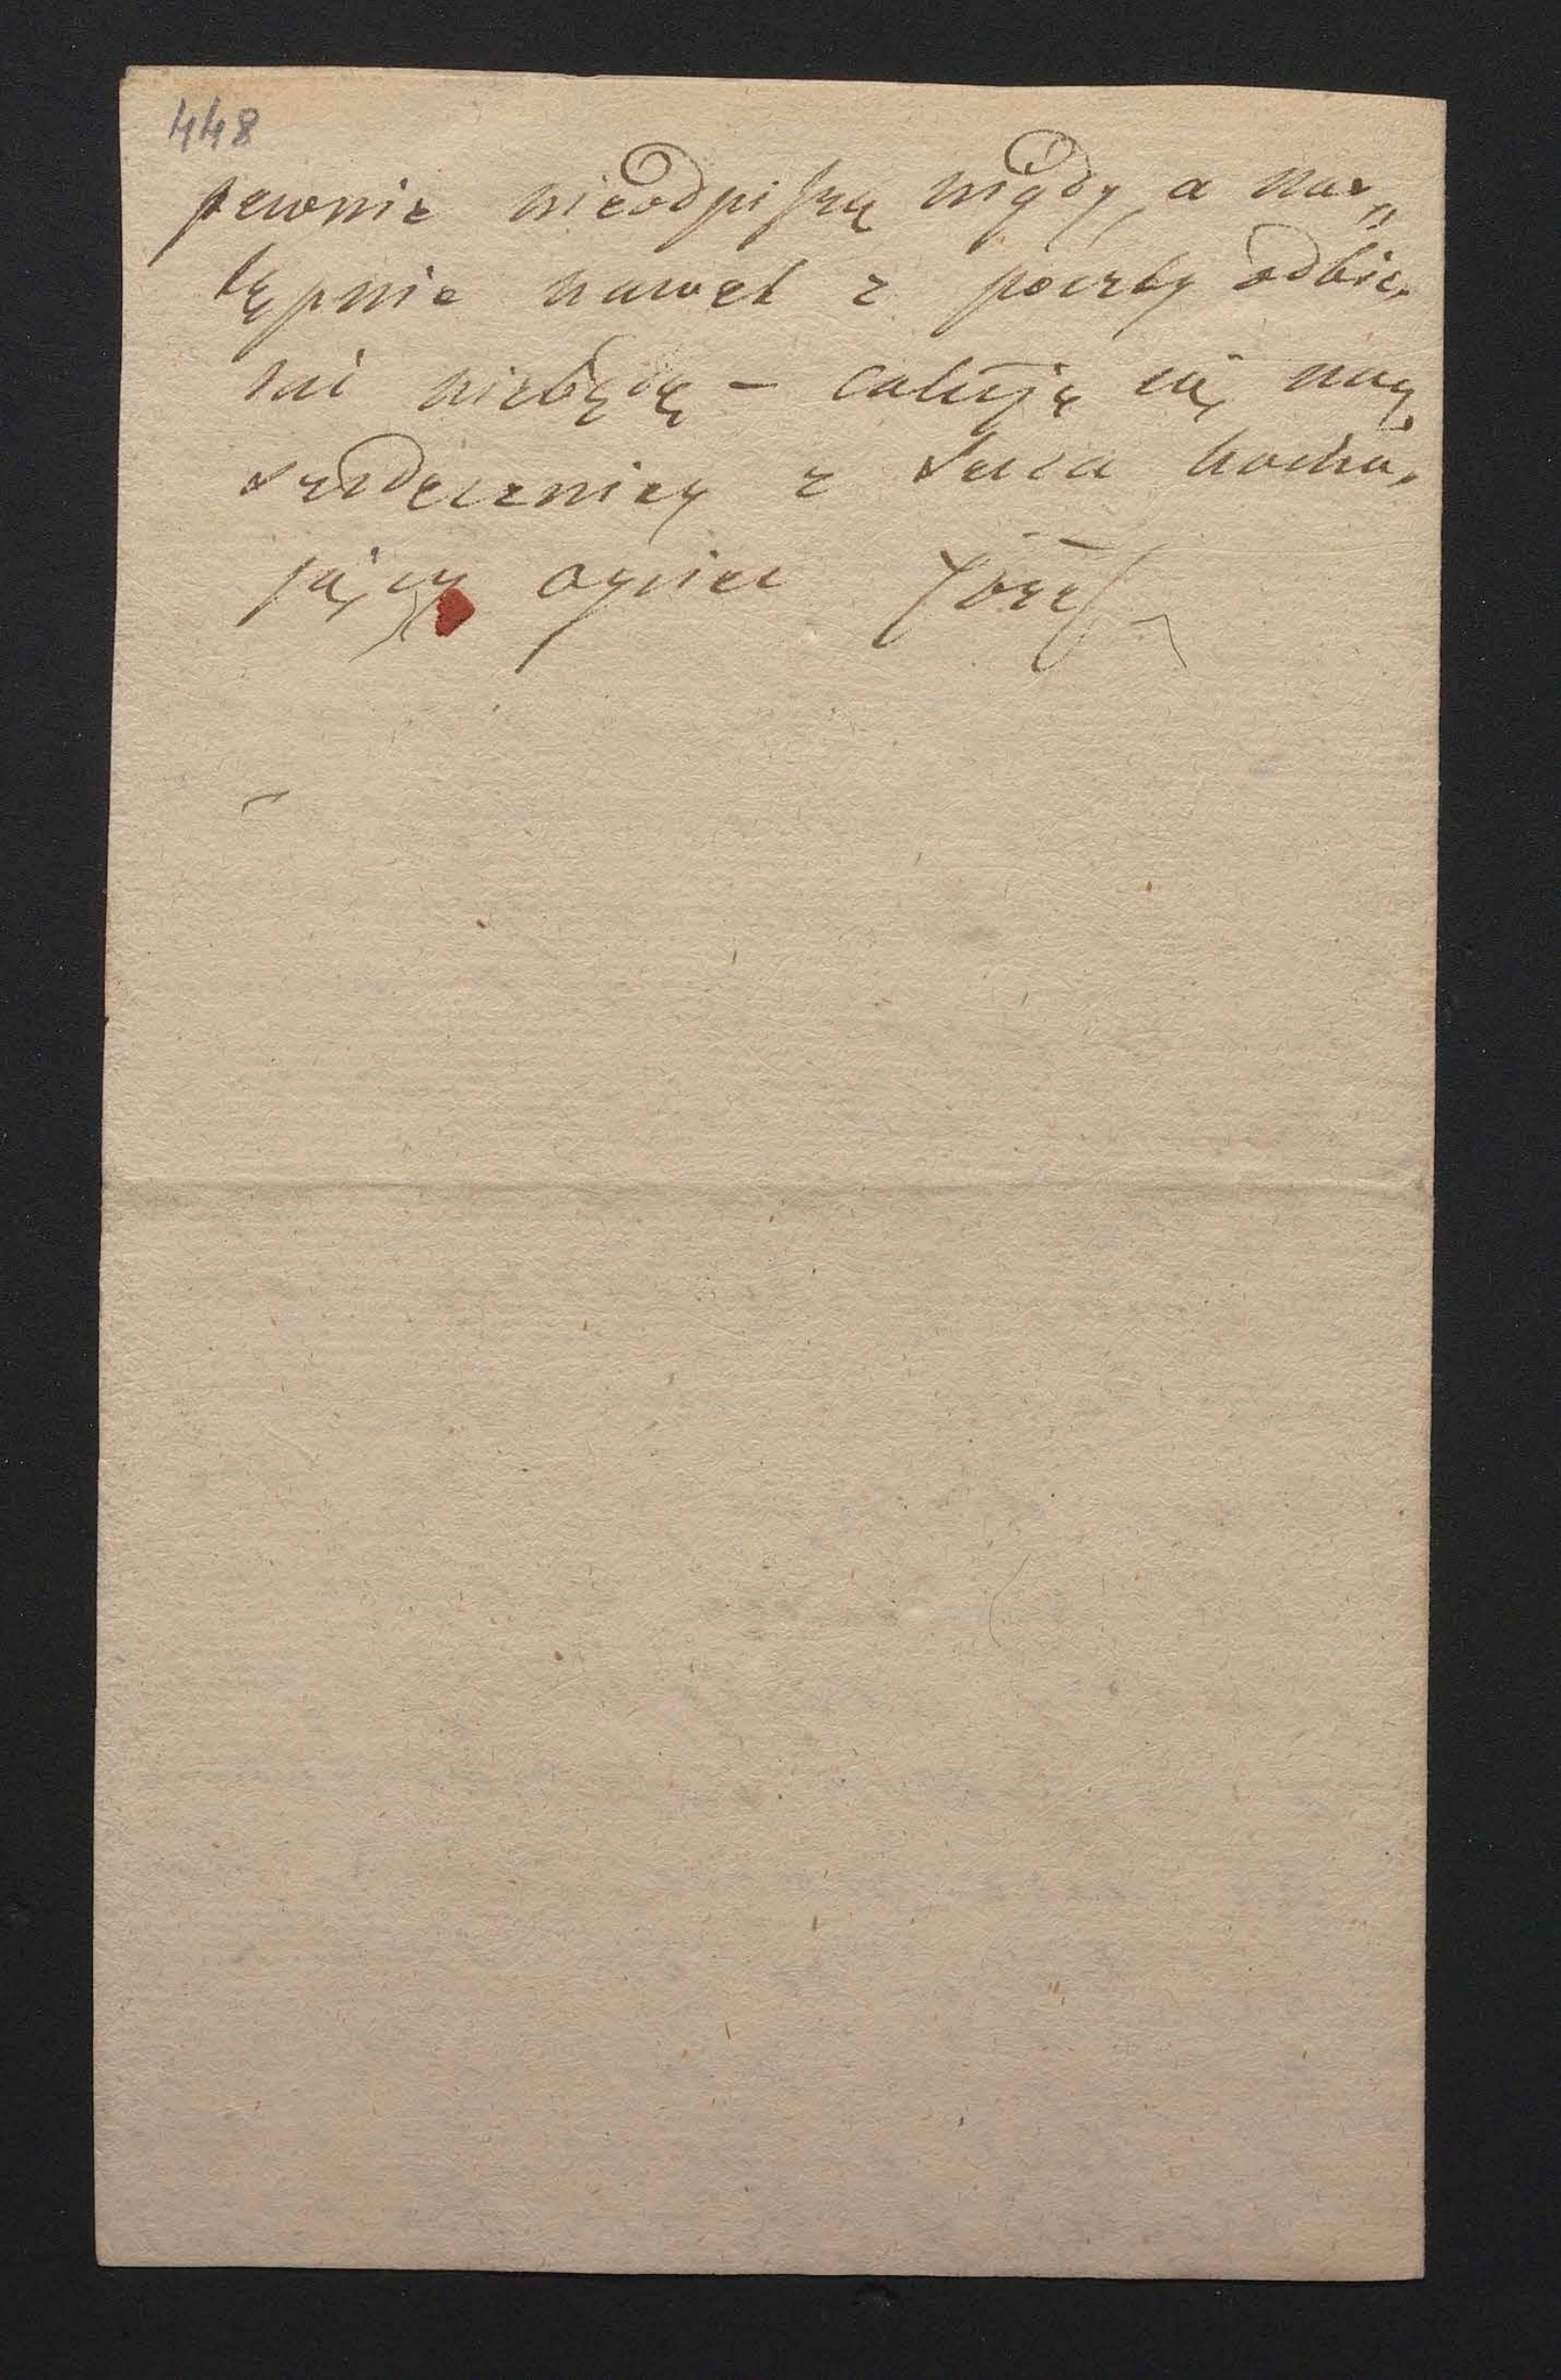 448
pewnie nieodpiszę nigdy, a nas„
tępnie nawet z poczty odbie,
rać niebędę – całuję cię nay,
serdeczniey z serca kocha,
jący oyciec Józef